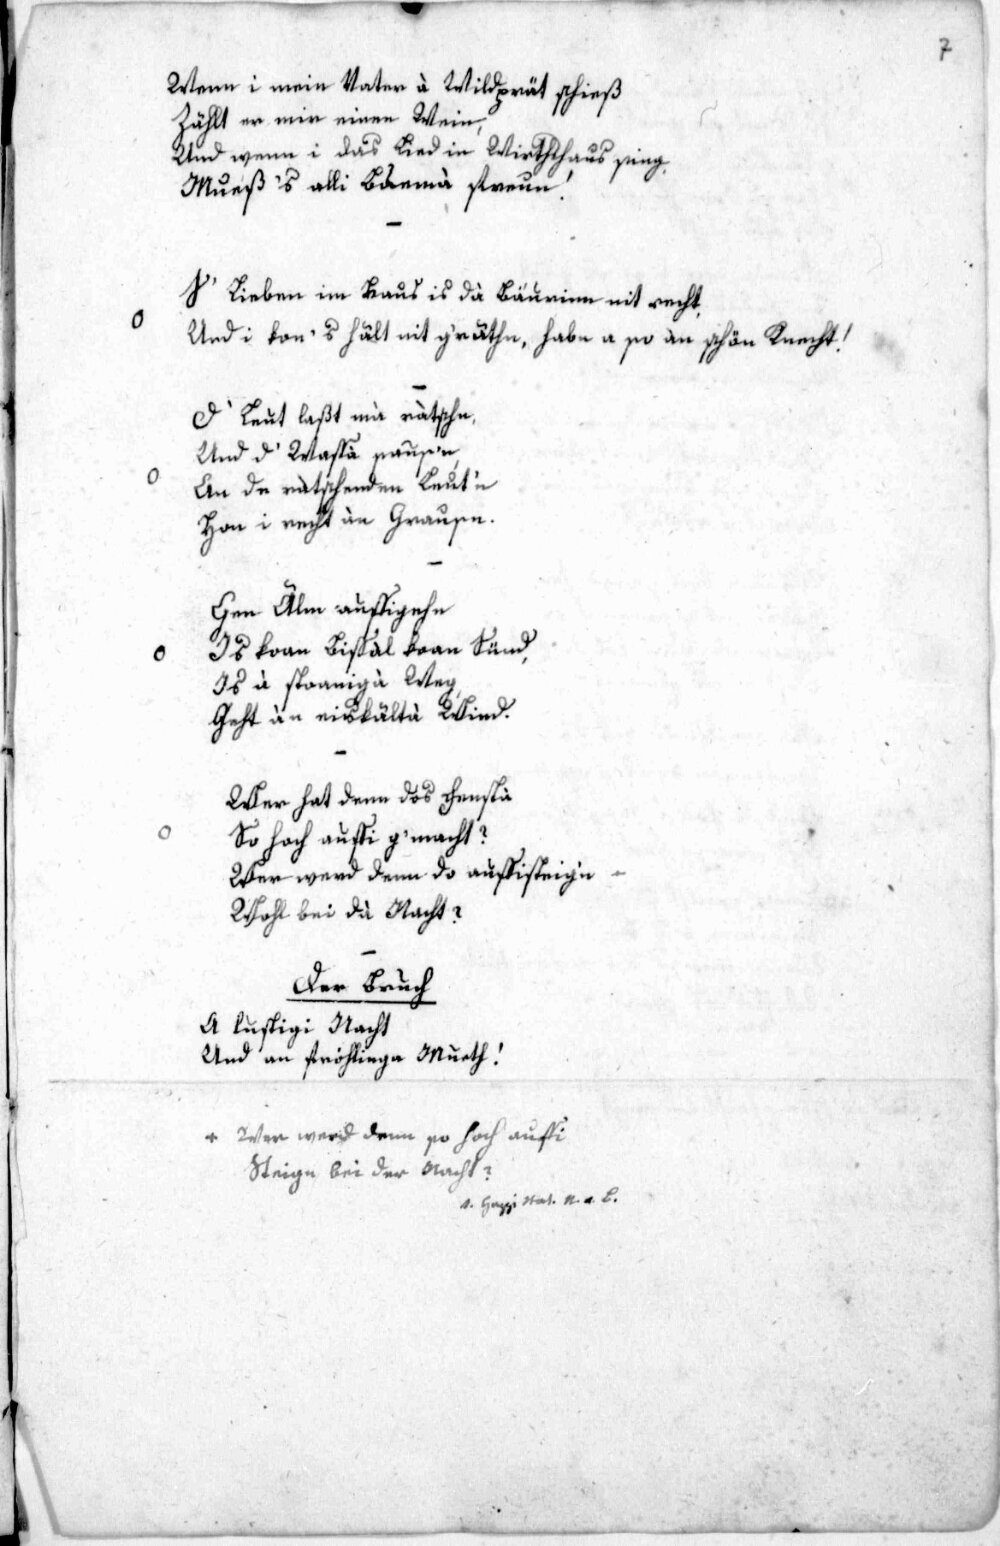 7
Wenn i mein Vater à Wildprät schieß
Zählt er mir einen Wein,
Und wenn i das Lied in Wirthshaus sing,
Mueß 's alli Bàemà streun!
–
S' Lieben im Haus is dà Bäurinn nit recht,
o
Und i kon 's hält nit g'räthn, habn a so àn schön Knecht!
–
D' Leut laßt mà rätschn,
Und d' Wassà sausn,
o
An de rätschenden Leut'n
Hon i recht àn Grausn.
–
Gen Älm aussigehn
o
Is koan Bissàl koan Sünd,
Is à stoanigà Weg,
Geht àn eiskältà Wind.
–
Wer hat denn dös Fenstà
o
So hoch aussi g'macht?
Wer werd denn do aufsisteig'n +
Wohl bei dà Nacht?
–
Der Bruch
A lustigi Nacht
Und an fröhlinga Mueth!
+ Wer werd denn so hoch aufsi
Steign bei der Nacht?